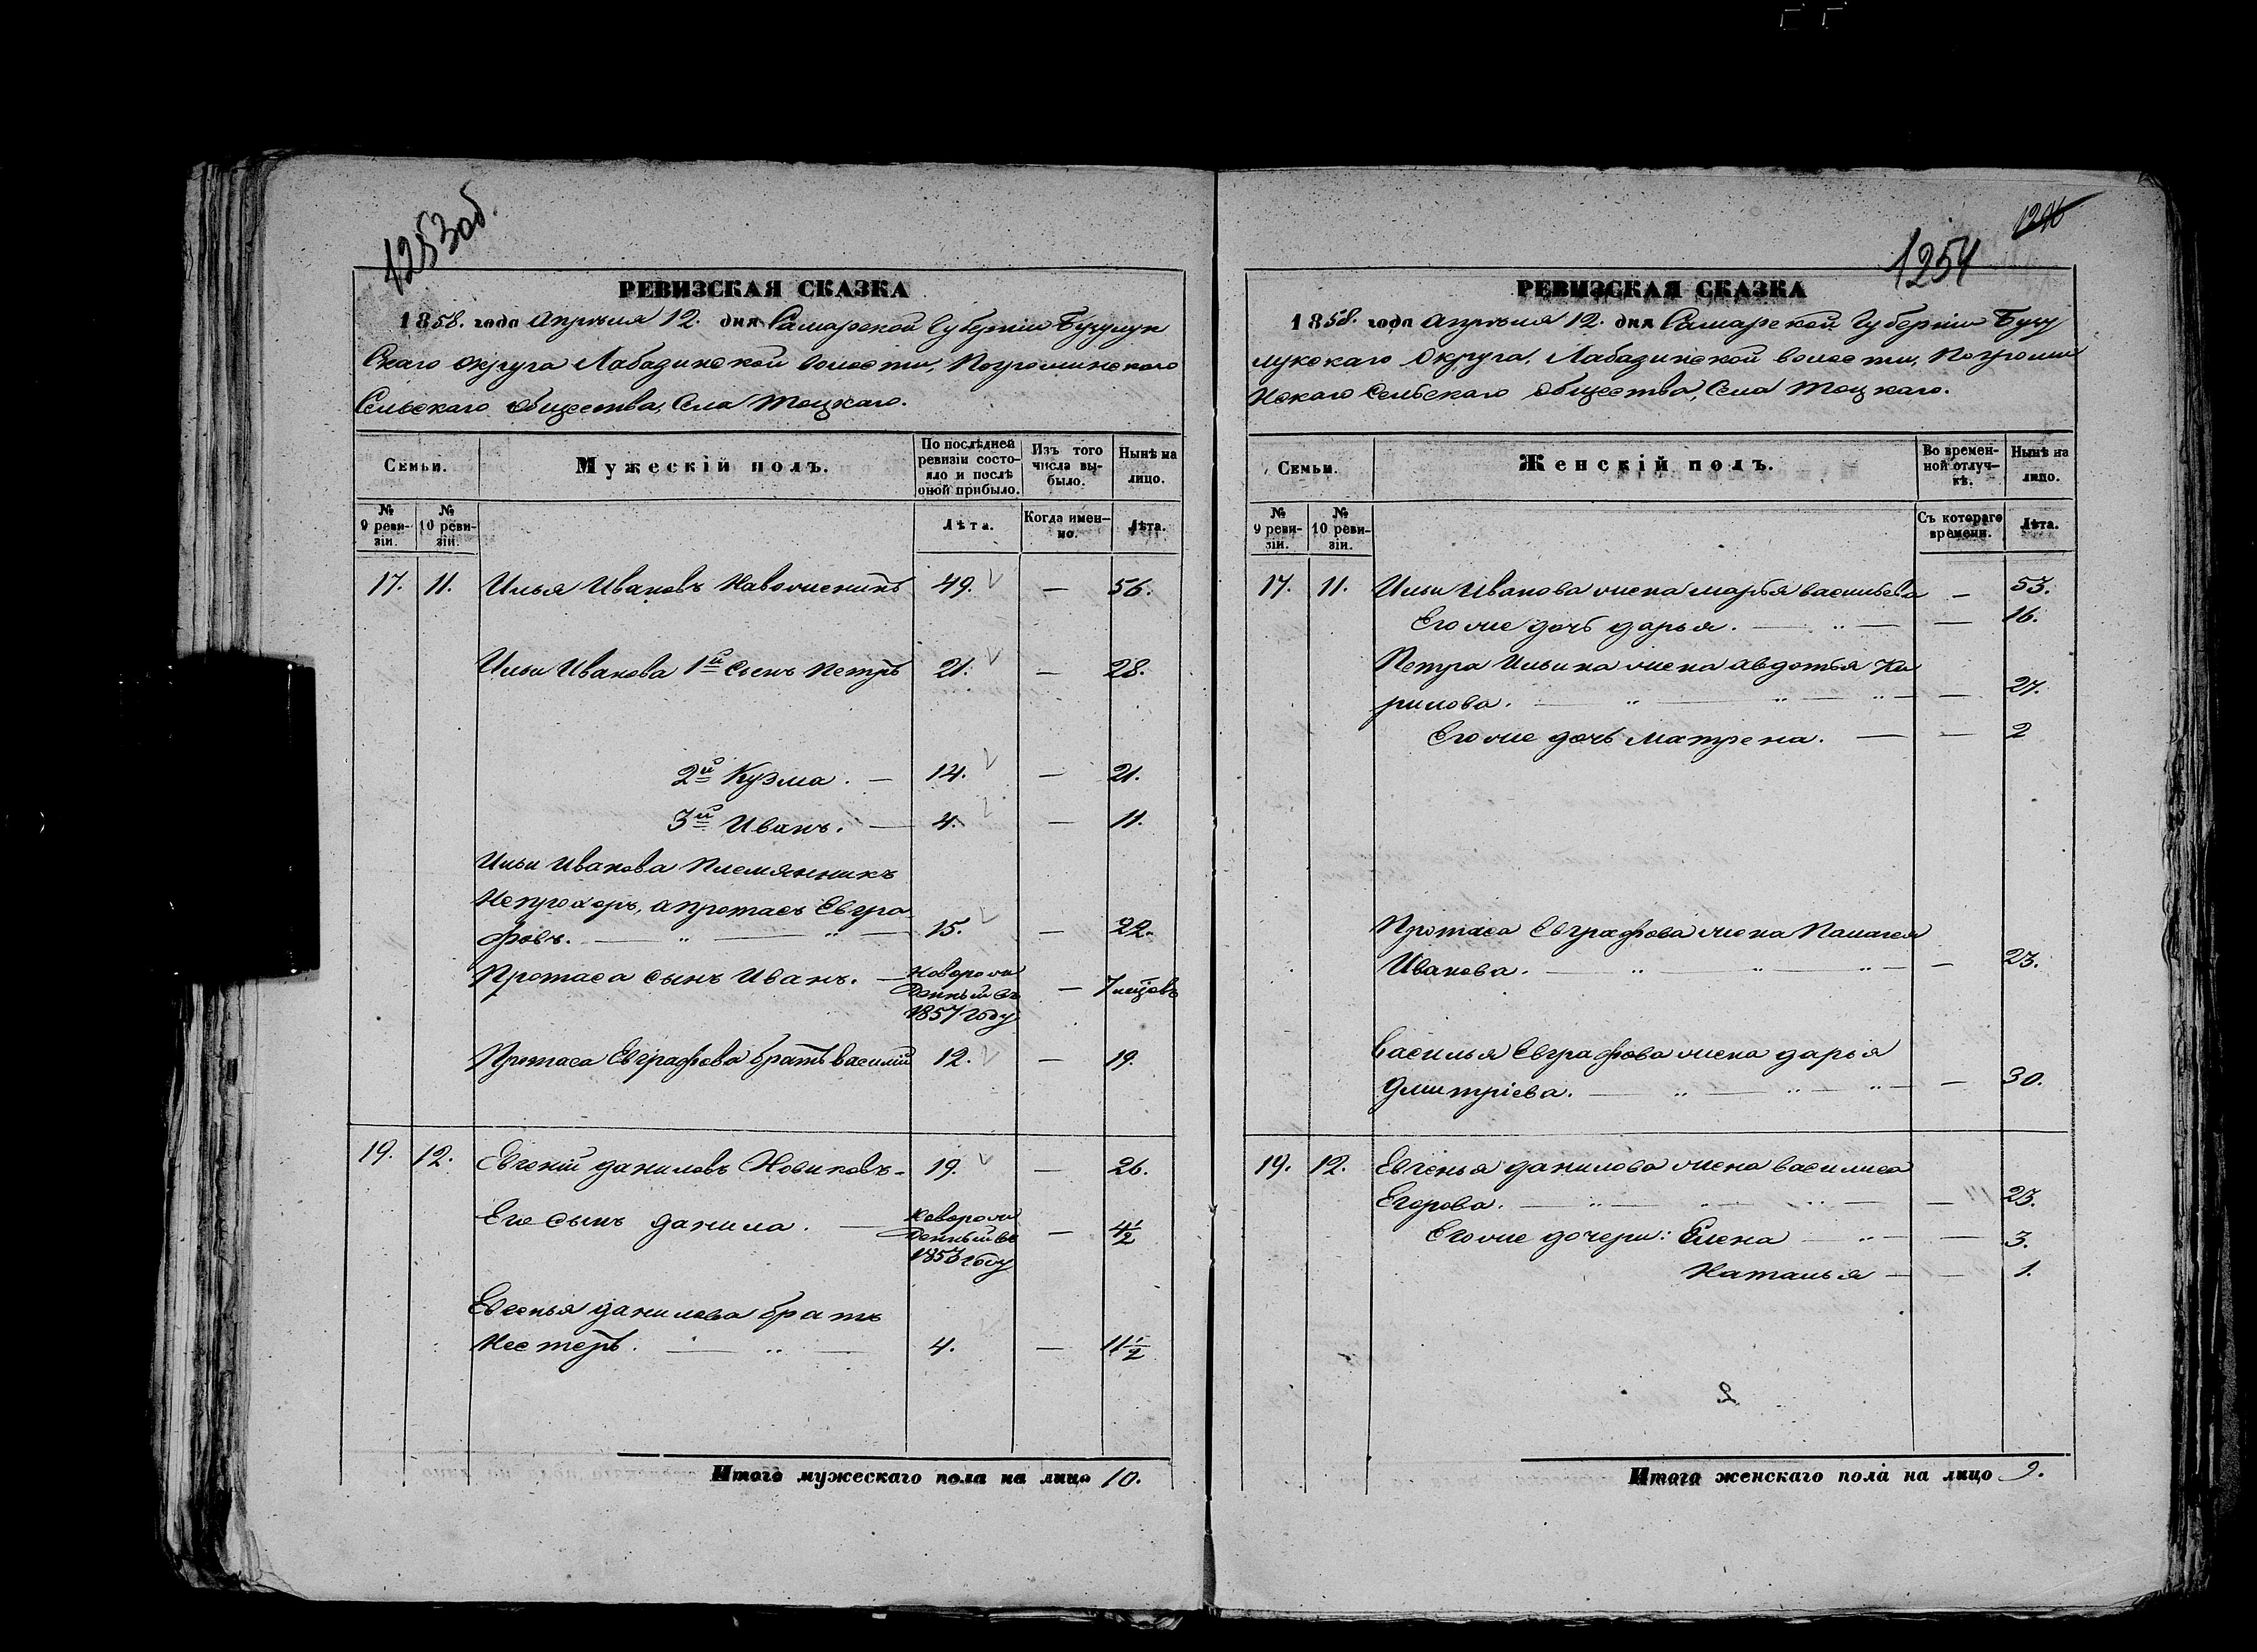 1253об.
РЕВИЗСКАЯ СКАЗКА
1858. года Апрѣля 12. дня Самарской Губерніи Бузулук
Скаго округа Лабазинской волости, Погроминского
Сельскаго общества, Села Тоцкаго.
Семьи.
Мужескій полъ.
По послѣдней ревизіи состояло и послѣ оной прибыло.
Изъ того числа выбыло.
Нынѣ на лицо.
№ 9 ревизіи.
№ 10 ревизіи.
Лѣта.
Когда именно.
Лѣта.
17. 11. Илья Ивановъ Наволженинъ 49. — 56.
Ильи Иванова 1й сынъ Петръ 21. — 28.
2й Кузма. — 14. — 21.
3й Иванъ. — 4. — 11.
Ильи Иванова Племянникъ
Непрохоръ, а протасъ Евгра
фовъ. — „ — „ — 15. — 22.
Протаса сынъ Иванъ. — Новорож
денный въ
1857 году — 7 мцовъ
Протаса Евграфова братъ василій 12. — 19.
19. 12. Евгеній даниловъ Новиковъ. 19. — 26.
Его сынъ данила. — Новорож
денный въ
1853 году — 4½
Евгенья данилова братъ
Нестеръ. — „ — 4. — 11½
Итого мужескаго пола на лицо 10.
1246
1254
РЕВИЗСКАЯ СКАЗКА
1858. года Апрѣля 12. дня Самарской Губерніи Бузу
лукскаго Округа, Лабазинской волости, Погромин
скаго Сельскаго общества, Села Тоцкаго.
Семьи.
Женскій полъ.
Во временной отлучкѣ.
Нынѣ на лицо.
№ 9 ревизіи.
№ 10 ревизіи.
Съ котораго времени.
Лѣта.
17. 11. Ильи Иванова жена марья васильева — 53.
Его же дочь дарья. — „ — — 16.
Петра Ильина жена авдотья Ка
рилова. — „ — „ — — 27.
Его же дочь Матрена. — — 2
Протаса Евграфова жена Палагея
Иванова. — „ — „ — „ — — 23.
Василья Евграфова жена дарья
Дмитріева. — „ — „ — „ — — 30.
19. 12. Евгенья данилова жена василиса
Егорова. — „ — „ — „ — — 23.
Его же дочери: Елена — „ — — 3.
Наталья — — 1.
Итого женскаго пола на лицо 9.